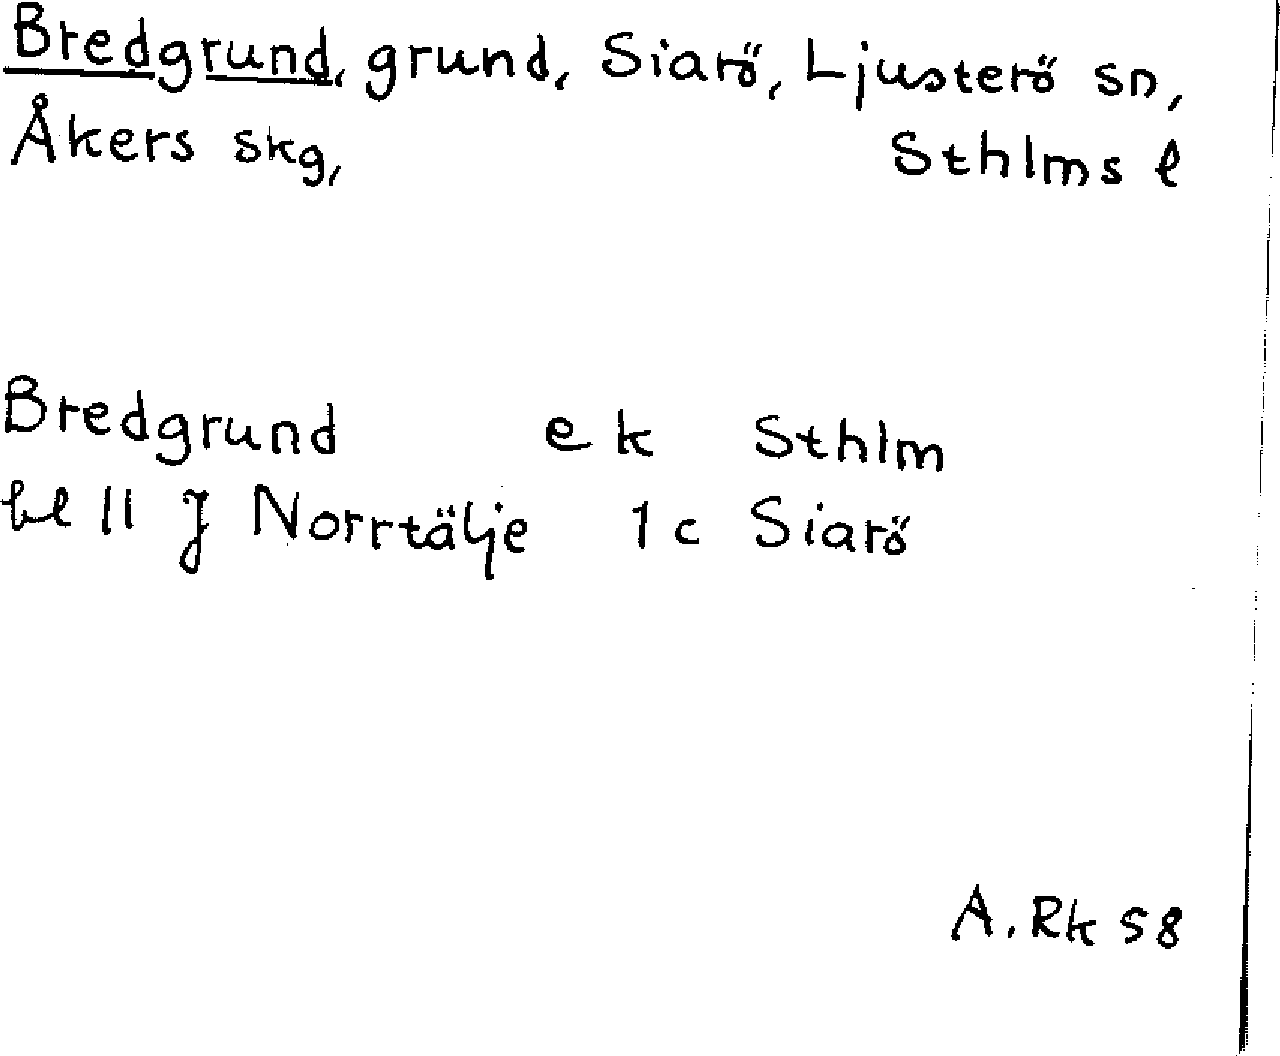 Bredgrund, grund, Siarö, Ljusterö sn,
Åkers skg, Sthlms l
Bredgrund ek Sthlm
bl 11 J Norrtälje 1c Siarö
A. Rk 58